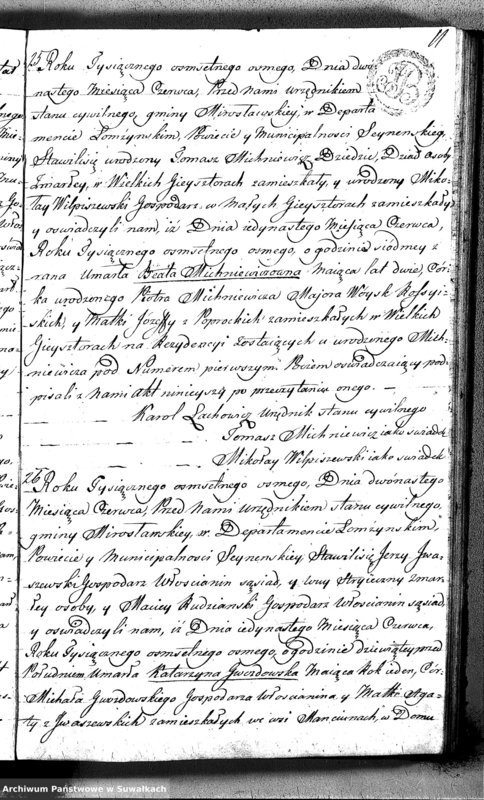 11
25 Roku Tysiącznego osmsetnego osmego, Dnia dwu-
nastego Miesiąca Czerwca, Przed Nami urzędnikiem
stanu cywilnego, gminy Mirosławskiey, w Departa
mencie Łomżynskim, Powiecie y Municipalnosci Seynenskiey,
Stawilisię urodzony Tomasz Michniewicz Dziedzic, Dziad osoby
Zmarłey, w Wielkich Gieysztorach zamieszkały, y urodzony Miko-
łay Wilpiszewski Gospodarz w Małych Gieysztorach zamieszkały
y oswiadczyli nam, iż Dnia iedynastego Miesiąca Czerwca,
Roku Tysiącznego osmsetnego osmego, o godzinie siodmey z
rana Umarła Beata Michniewiczowna maiąca lat dwie, Cor-
ka urodzonego Piotra Michniewicza Majora Woysk Rossyi-
skich, y Matki Józeffy z Poprockich zamieszkałych w Wielkich
Gieysztorach na Rezydencyi zostaiących u urodzonego Mich-
niewicza pod Numerem pierwszym. Poczem oswiadczaiący pod
pisali z Nami Akt ninieyszy po przeczytaniu onego. —
Karol Lachowicz Urzędnik stanu cywilnego
Tomasz Michniewicz iako swiadek
Mikołay Wilpiszewski iako swiadek
26 Roku Tysiącznego osmsetnego osmego, Dnia dwónastego
Miesiąca Czerwca, Przed Nami urzędnikiem stanu cywilnego,
gminy Mirosławskiey, w Departamencie Łomżynskim,
Powiecie y Municipalnosci Seynenskiey, Stawilisię Jerzy Iwa-
szewski Gospodarz Włoscianin sąsiad, y Stryieczny zmar-
łey osoby, y Maciey Rudzianski Gospodarz Włoscianin sąsiad,
y oswiadczyli nam, iż Dnia iedynastego Miesiąca Czerwca,
Roku Tysiącznego osmsetnego osmego, o godzinie dziewiątey przed
Południem, Umarła Katarzyna Gwozdowska maiąca Rok ieden, Cor-
Michała Gwozdowskiego Gospodarza Włoscianina y Matki Aga-
ty z Iwaszewskich zamieszkałych we wsi w Domu
Archiwum Państwowe w Suwałkach